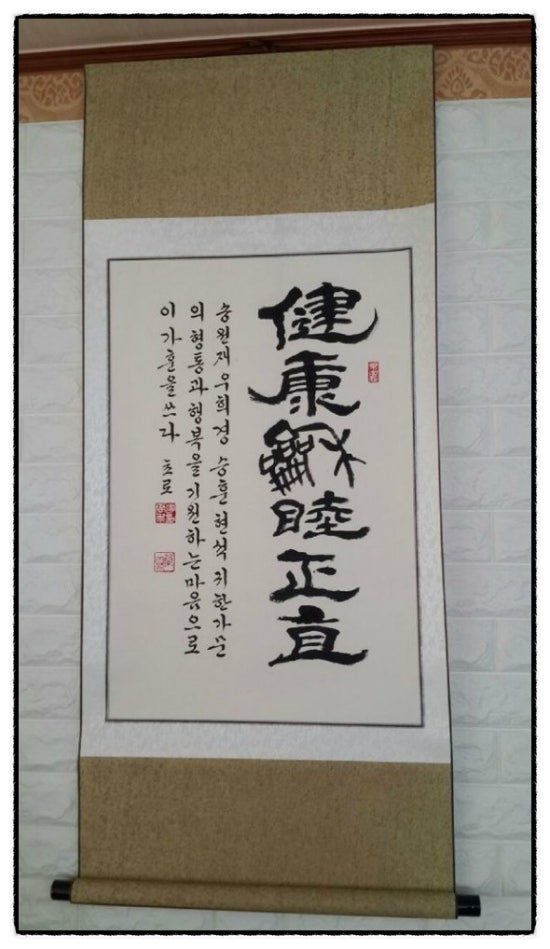 健康龢睦正直
송원재 우희경 승훈 현석 귀한가문
의형통과행복을기원하는마음으로
이가훈을쓰다 초로